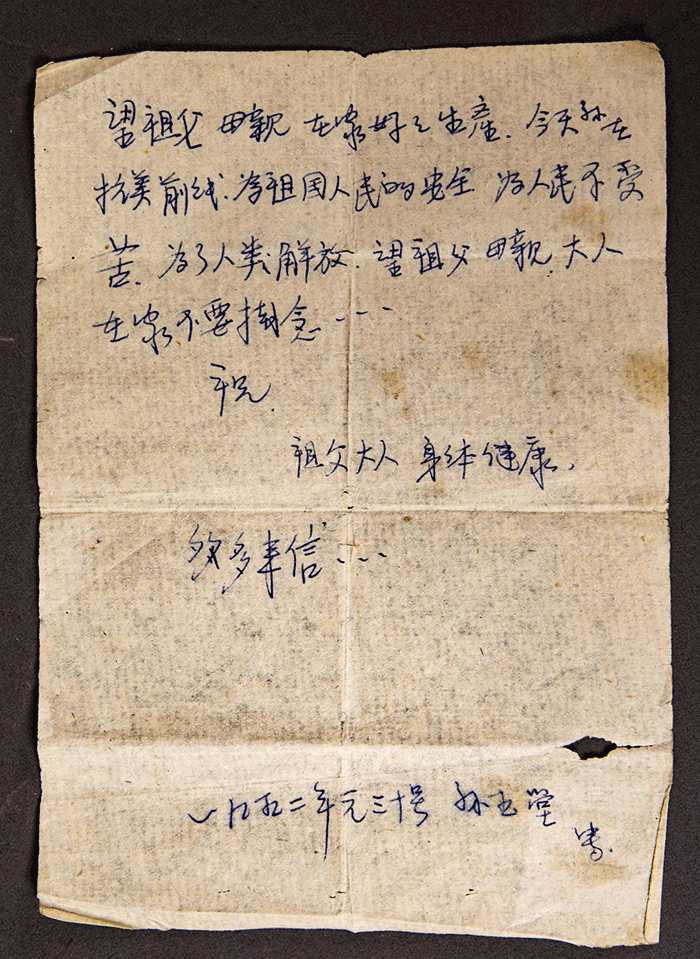 望祖父 母亲 在家好々生産. 今天孙在
抗美前线. 为祖国人民的安全 为人民不受
苦. 为了人类解放. 望祖父 母亲. 大人
在家不要掛念...
祝.
祖父大人 身体健康.
多来信...
一九五二年元三十号 孙玉堂